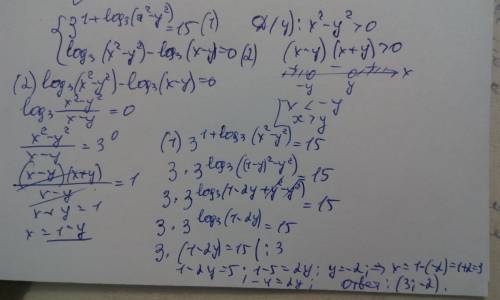 { 3^{1+log₃(x²-y²)} = 15 (1)
log₃(x²-y²)-log₃(x-y)=0 (2)
Д(y): x²-y²>0
(x-y)(x+y)>0
+ - + x
-y y
[ x < -y
x > y
(2) log₃(x²-y²)-log₃(x-y)=0
log₃ (x²-y²)/(x-y) = 0
(x²-y²)/(x-y) = 3⁰
(x-y)(x+y)/(x-y) = 1
x+y = 1
x = 1-y
(1) 3^{1+log₃(x²-y²)} = 15
3·3^{log₃((1-y)²-y²)} = 15
3·3^{log₃(1-2y+y²-y²)} = 15
3·3^{log₃(1-2y)} = 15
3·(1-2y)=15 |:3
1-2y=5; 1-5=2y; y=-2; ⇒ x=1-(-2)=1+2=3
-4=2y; Ответ: (3;-2).